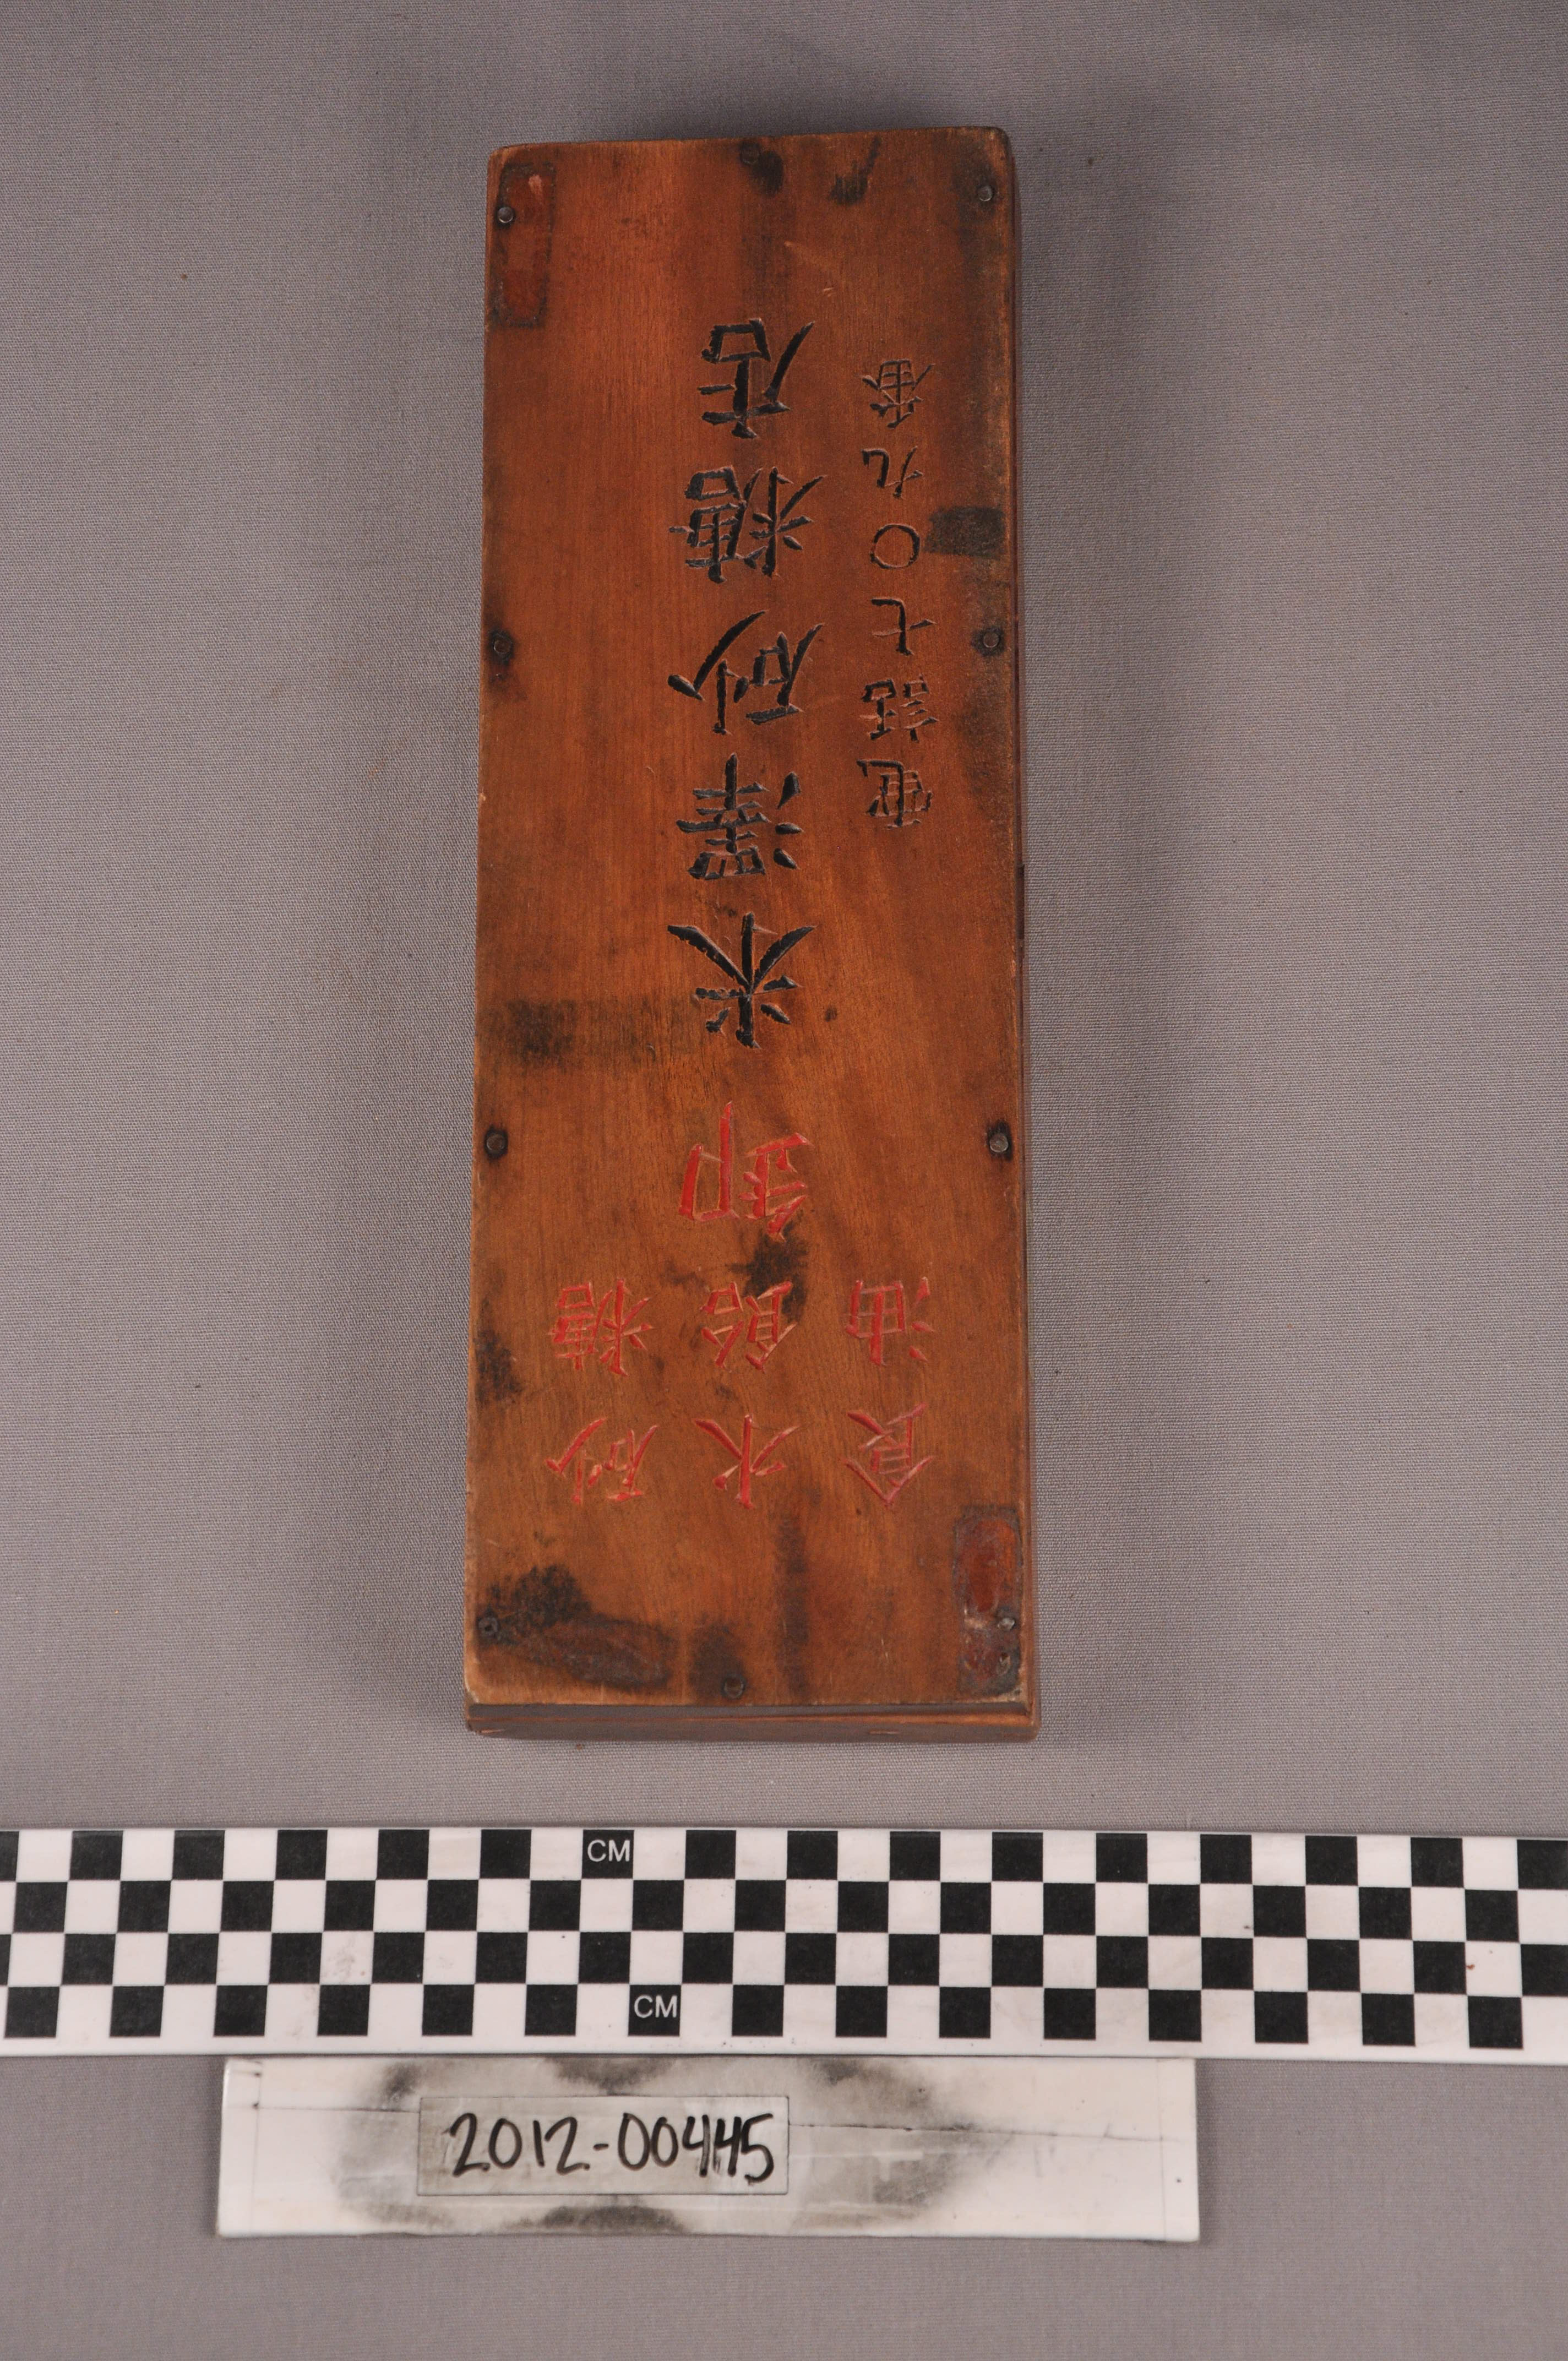 砂糖
水飴
食油
卸
米澤砂糖店
電話七〇九番
CM
CM
2012-00445